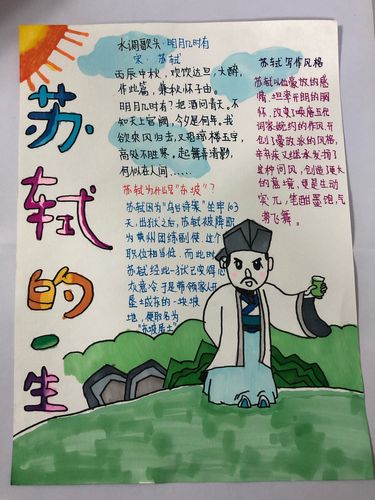 苏轼的一生
水调歌头·明月几时有
宋·苏轼
丙辰中秋，欢饮达旦，大醉，
作此篇，兼怀子由。
明月几时有？把酒问青天。不
知天上宫阙，今夕是何年。我
欲乘风归去，又恐琼楼玉宇，
高处不胜寒，起舞弄清影，
何似在人间……
苏轼为什么写"东坡"？
苏轼因为"乌台诗案"坐牢103
天，出狱之后，苏轼被降职
为黄州团练副使，这个
职位相当低，而此时
苏轼经此一狱已变得心
灰意冷，于是带领家人开
垦城东的一块坡
地，便取名为
"东坡居士"
苏轼写作风格
苏轼以豪放的感
情，坦率开朗的胸
怀，改变了晚唐五代
词婉约的作风，开
创了豪放派的风格，
辛弃疾又继承发扬了
这种词风，创造了强大
的意境，更是生动
笔酣墨饱，气
势飞舞。